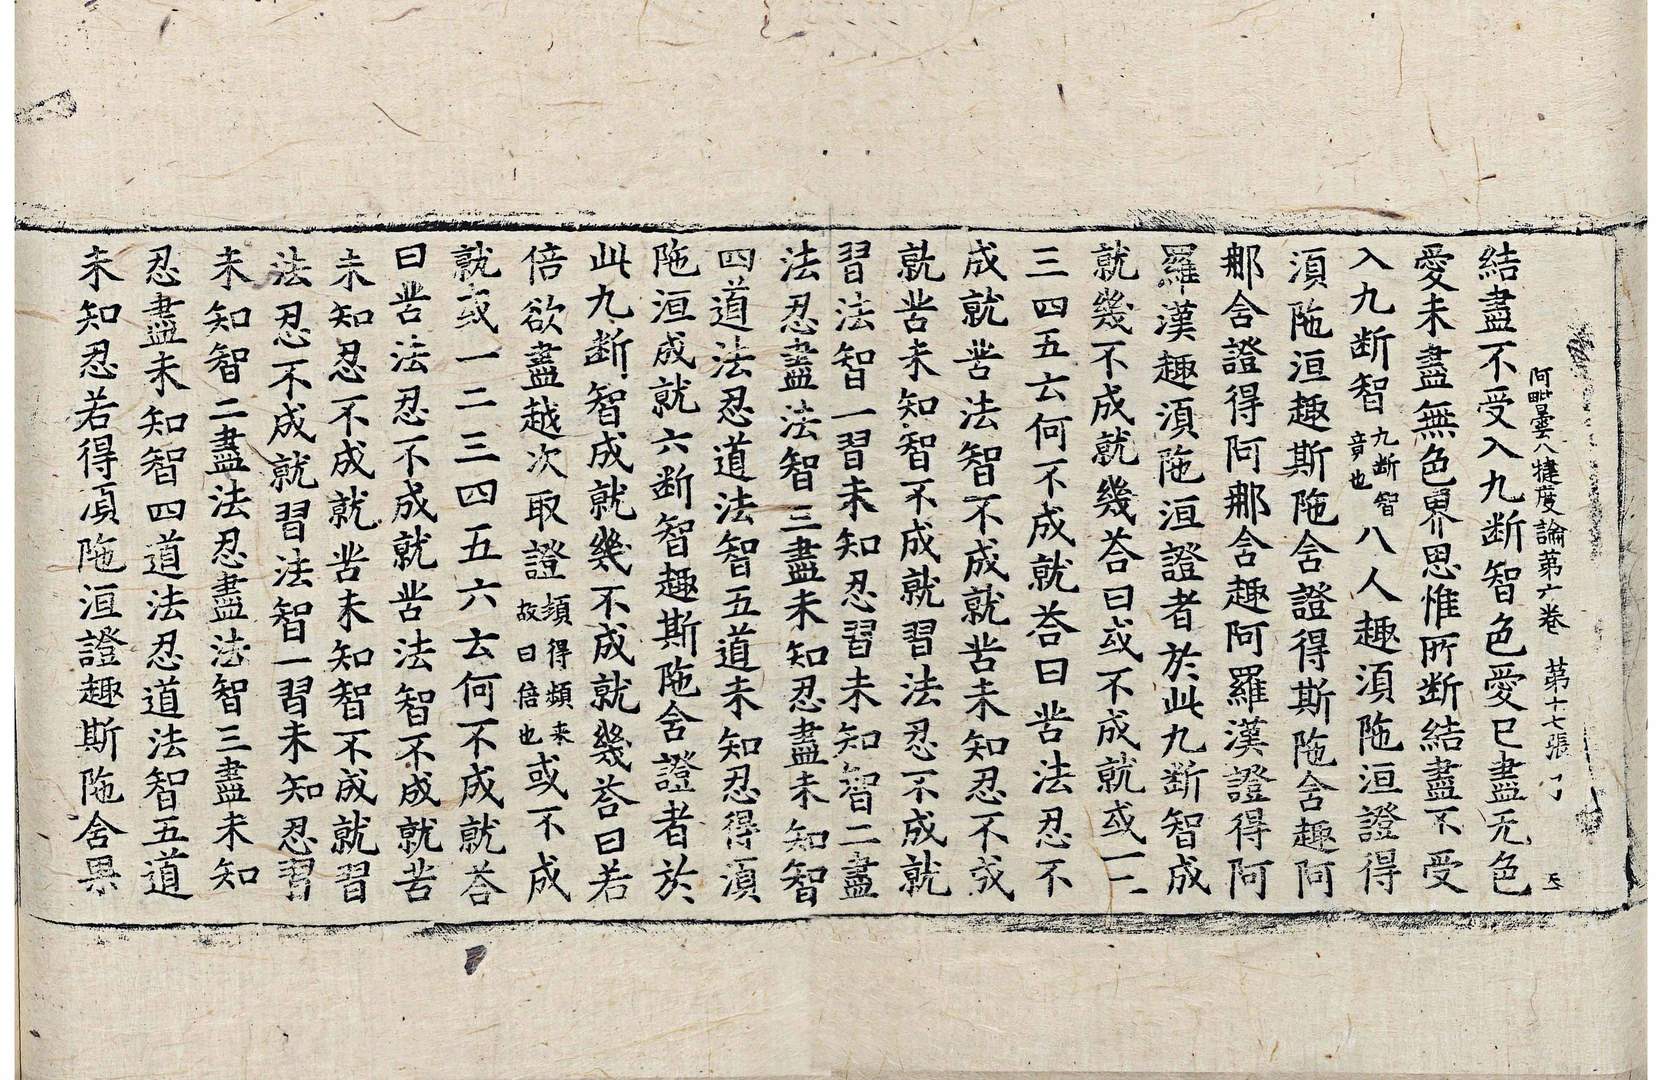 阿毗曇八犍度論第六卷　第十七張
結盡不受入九断智色愛已盡无色
愛未盡無色界思惟所断結盡不受
入九断智九断智竟也八人趣湏陁洹證得
湏陁洹趣斯陁含證得斯陁含趣阿
那含證得阿那含趣阿羅漢證得阿
羅漢趣湏陁洹證者於此九断智成
就幾不成就幾荅曰或不成就或一二
三四五云何不成就荅曰苦法忍不
成就苦法智不成就苦未知忍不成
就苦未知智不成就習法忍不成就
習法智一習未知忍習未知智二盡
法忍盡法智三盡未知忍盡未知智
四道法忍道法智五道未知忍得湏
陁洹成就六断智趣斯陁含證者於
此九断智成就幾不成就幾荅曰若
倍欲盡越次取證頻得頻来故曰倍也或不成
就或一二三四五六云何不成就荅
曰苦法忍不成就苦法智不成就苦
未知忍不成就苦未知智不成就習
法忍不成就習法智一習未知忍習
未知智二盡法忍盡法智三盡未知
忍盡未知智四道法忍道法智五道
未知忍若得湏陁洹證趣斯陁含果